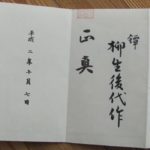 鐔
柳生後代作
正真
平成二年十月七日